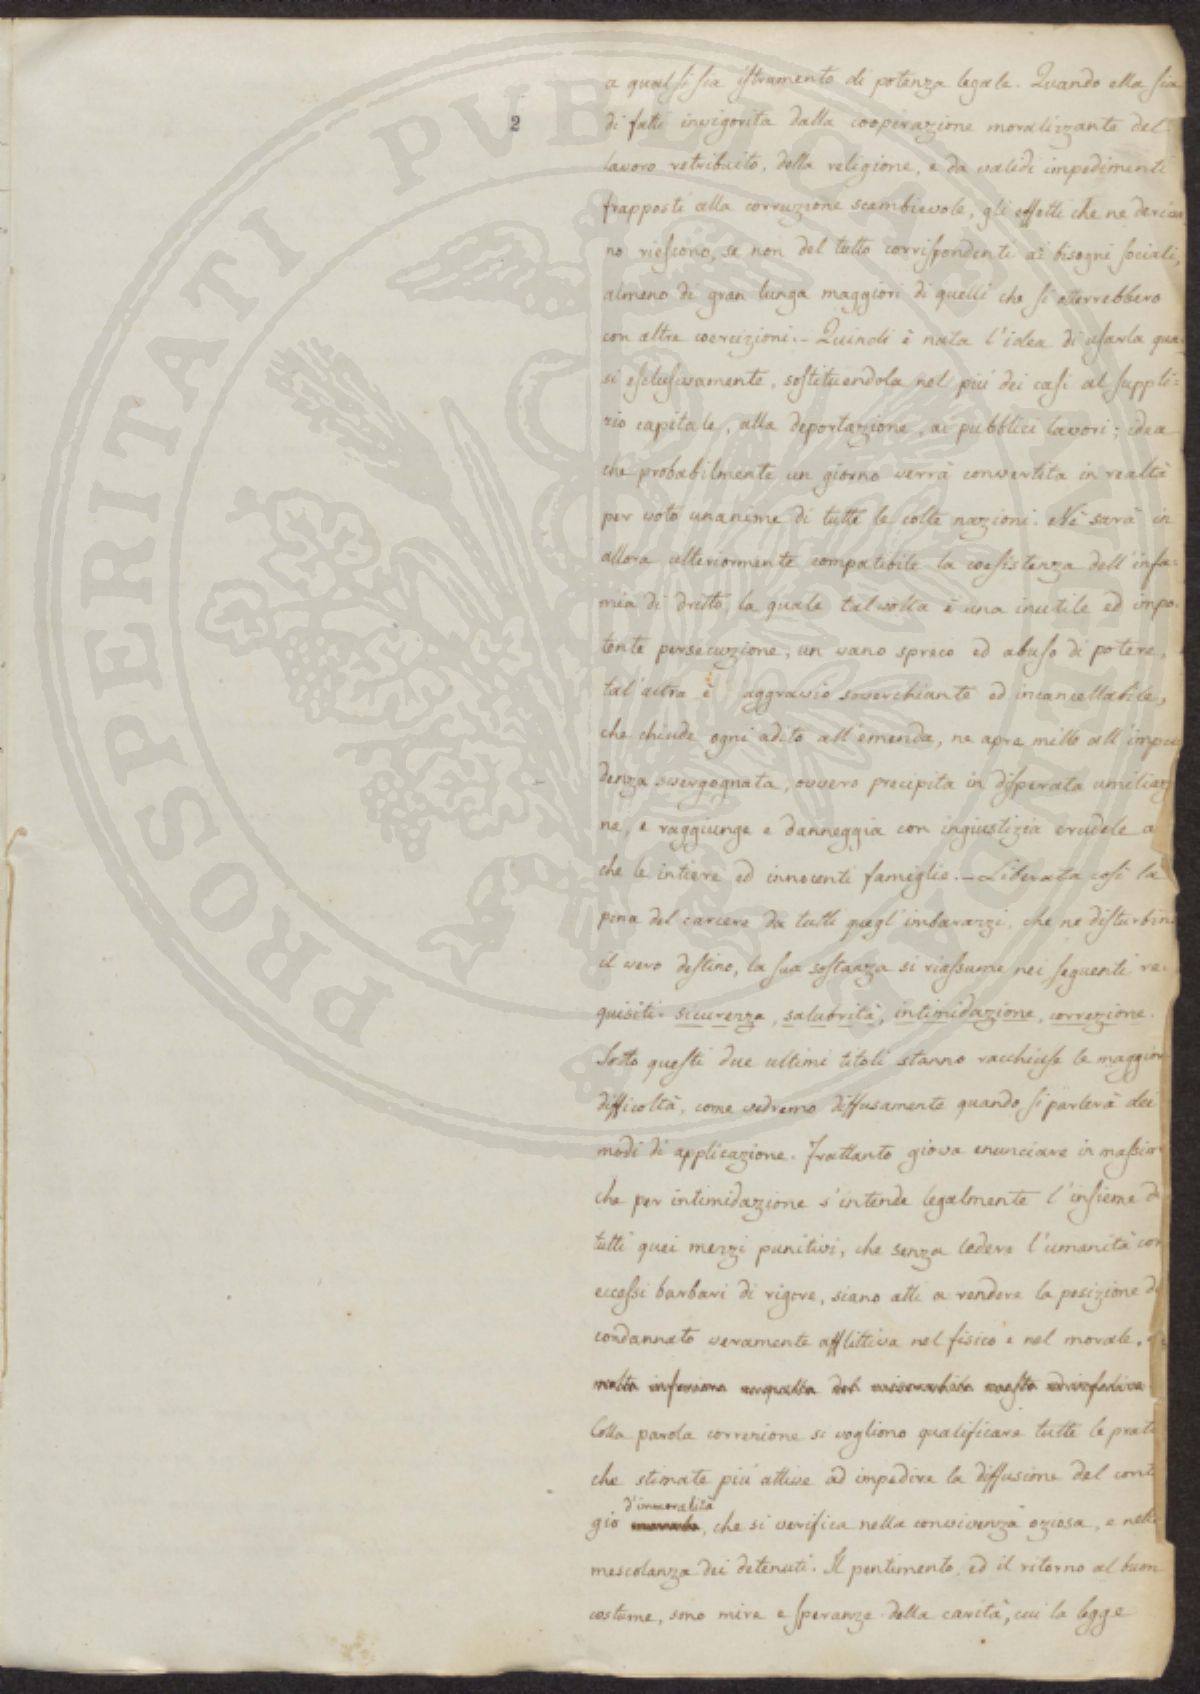 2
a qualsisia istrumento di potenza legale. Quando ella sia
di fatti invigorita dalla cooperazione moralizzante del
lavoro retribuito, della religione, e da validi impedimenti
frapposti alla corruzione scambievole, gli effetti che ne deriva
no riescono, se non del tutto corrispondenti ai bisogni sociali,
almeno di gran lunga maggiori di quelli che si otterrebbero
con altre coercizioni. – Quindi è nata l'idea di usarla qua
si esclusivamente, sostituendola nel più dei casi al suppli=
zio capitale, alla deportazione, ai pubblici lavori; idea
che probabilmente un giorno verrà convertita in realtà
per voto unanime di tutte le colte nazioni. Nè sarà in
allora ulteriormente compatibile la coesistenza dell'infa=
mia di dritto, la quale talvolta è una inutile ed impo=
tente persecuzione, un vano spreco ed abuso di potere,
tal'altra è aggravio soverchiante ed incancellabile,
che chiude ogni adito all'emenda, ne apre mille all'impu
denza svergognata, ovvero precipita in disperata umiliaz
ne, e raggiunge e danneggia con ingiustizia crudele a
che le intiere ed innocenti famiglie. – Liberata così la
pena del carcere da tutti quegl'imbarazzi, che ne disturbin
il vero destino, la sua sostanza si riassume nei seguenti re
quisiti. sicurezza, salubrità, intimidazione, correzione.
Sotto questi due ultimi titoli stanno racchiuse le maggior
difficoltà, come vedremo diffusamente quando si parlerà dei
modi di applicazione. Frattanto giova enunciare in massim
che per intimidazione s'intende legalmente l'insieme d
tutti quei mezzi punitivi, che senza ledere l'umanità con
eccessi barbari di rigore, siano atti a rendere la posizione d
condannato veramente afflittiva nel fisico e nel morale.
molto inferiore a quella del miserabile onesto
Colla parola correzione si vogliono qualificare tutte le prati
che stimate più attive ad impedire la diffusione del conta
d'immoralità
gio morale, che si verifica nella convivenza oziosa, e nella
mescolanza dei detenuti. Il pentimento, ed il ritorno al buon
costume, sono mire e speranze della carità, cui la legge
PROSPERITATI PUBLICAE